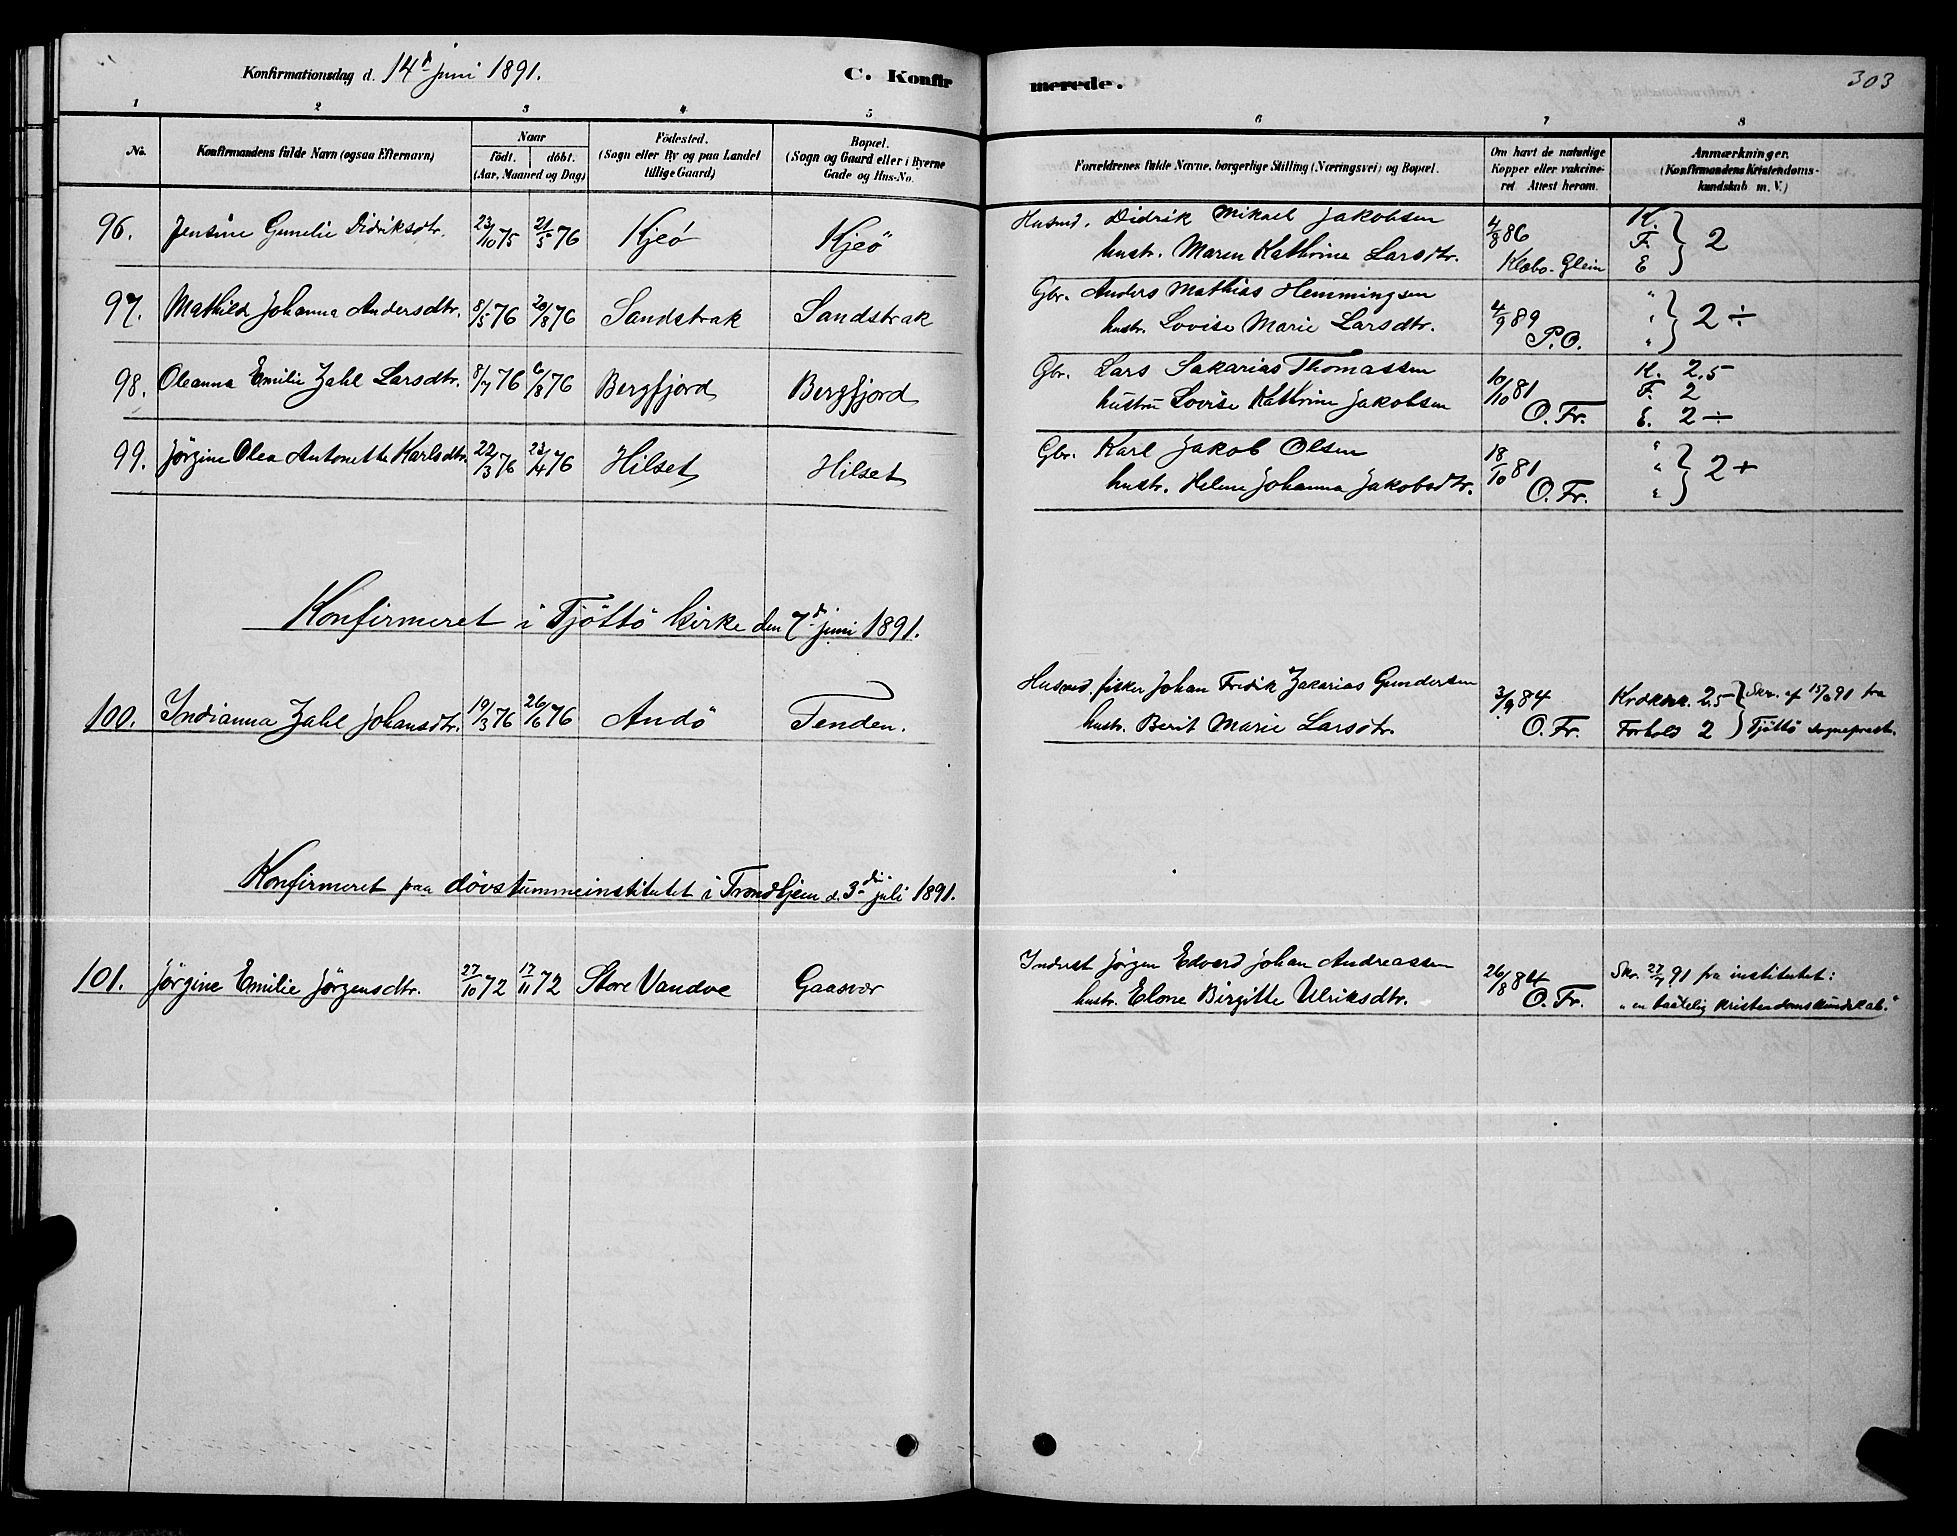 Konfirmationsdag d. 14d juni 1891.
C. Konfirmerede.
303
1 2 3 4 5 6 7 8
No.
Konfirmandens fulde Navn (ogsaa Efternavn)
Naar
födt. döbt.
(Aar, Maaned og Dag)
Födested.
(Sogn eller By og paa Landet
tillige Gaard)
Bopæl.
(Sogn og Gaard eller i Byerne
Gade og Hus-No.
Forældrenes fulde Navne, borgerlige Stilling (Næringsvei) og Bopæl.
Om havt de naturlige
Kopper eller vakcine-
ret. Attest herom.
Anmærkninger.
(Konfirmandens Kristendoms-
kundskab m. V.)
96. Jensine Gunelie Didriksdtr. 23/10 75 21/5 76 Kjeö Kjeö Husmd. Didrik Mikael Jakobsen 4/8 86 K. F. E } 2
hustr. Maren Kathrine Larsdtr. Klæbo-Glein
97. Mathild Johanna Andersdtr. 8/5 76 20/8 76 Sandstrak Sandstrak Gbr. Anders Mathias Hemmingsen 4/9 89 " " " } 2 ÷
hustr. Lovise Marie Larsdtr. P.O.
98. Oleanna Emilie Zahl Larsdtr. 8/7 76 6/8 76 Bergfjord Bergfjord Gbr. Lars Sakarias Thomassen 10/10 81 K. 2.5
F. 2
hustru Lovise Kathrine Jakobsen O. Fr. E. 2 ÷
99. Jörgine Olea Antonette Karlsdtr. 22/3 76 23/4 76 Hilset Hilset Gbr. Karl Jakob Olsen 18/10 81 " " " } 2 +
hustr. Helene Johanna Jakobsdtr. O. Fr.
Konfirmeret i Tjöttö kirke den 7de juni 1891.
100. Indianna Zahl Johansdtr. 19/3 76 26/6 76 Andö Tenden. Husmd. fisker Johan Fredik Zakarias Gundersen 3/9 84 2.5 } Skr. af 15/6 91 fra
hustr. Berit Marie Larsdtr. O. Fr. Forhold 2 Tjöttö sogneprest.
Konfirmeret paa dövstummeinstitutet i Trondhjem d. 3die juli 1891.
101. Jörgine Emilie Jörgensdtr. 27/10 72 17/11 72 Store Vandve Gaasvær Inderst Jörgen Edvard Johan Andreassen 26/8 84 Skr. 27/7 91 fra institutet:
hustr. Elone Birgitte Ulriksdtr. O. Fr. "en taalelig kristendomskundskab."